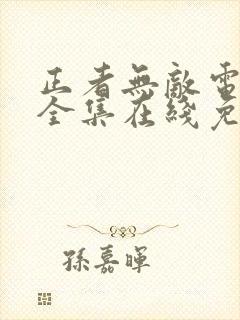 正者無敵電
全集在綫免
孫嘉暉